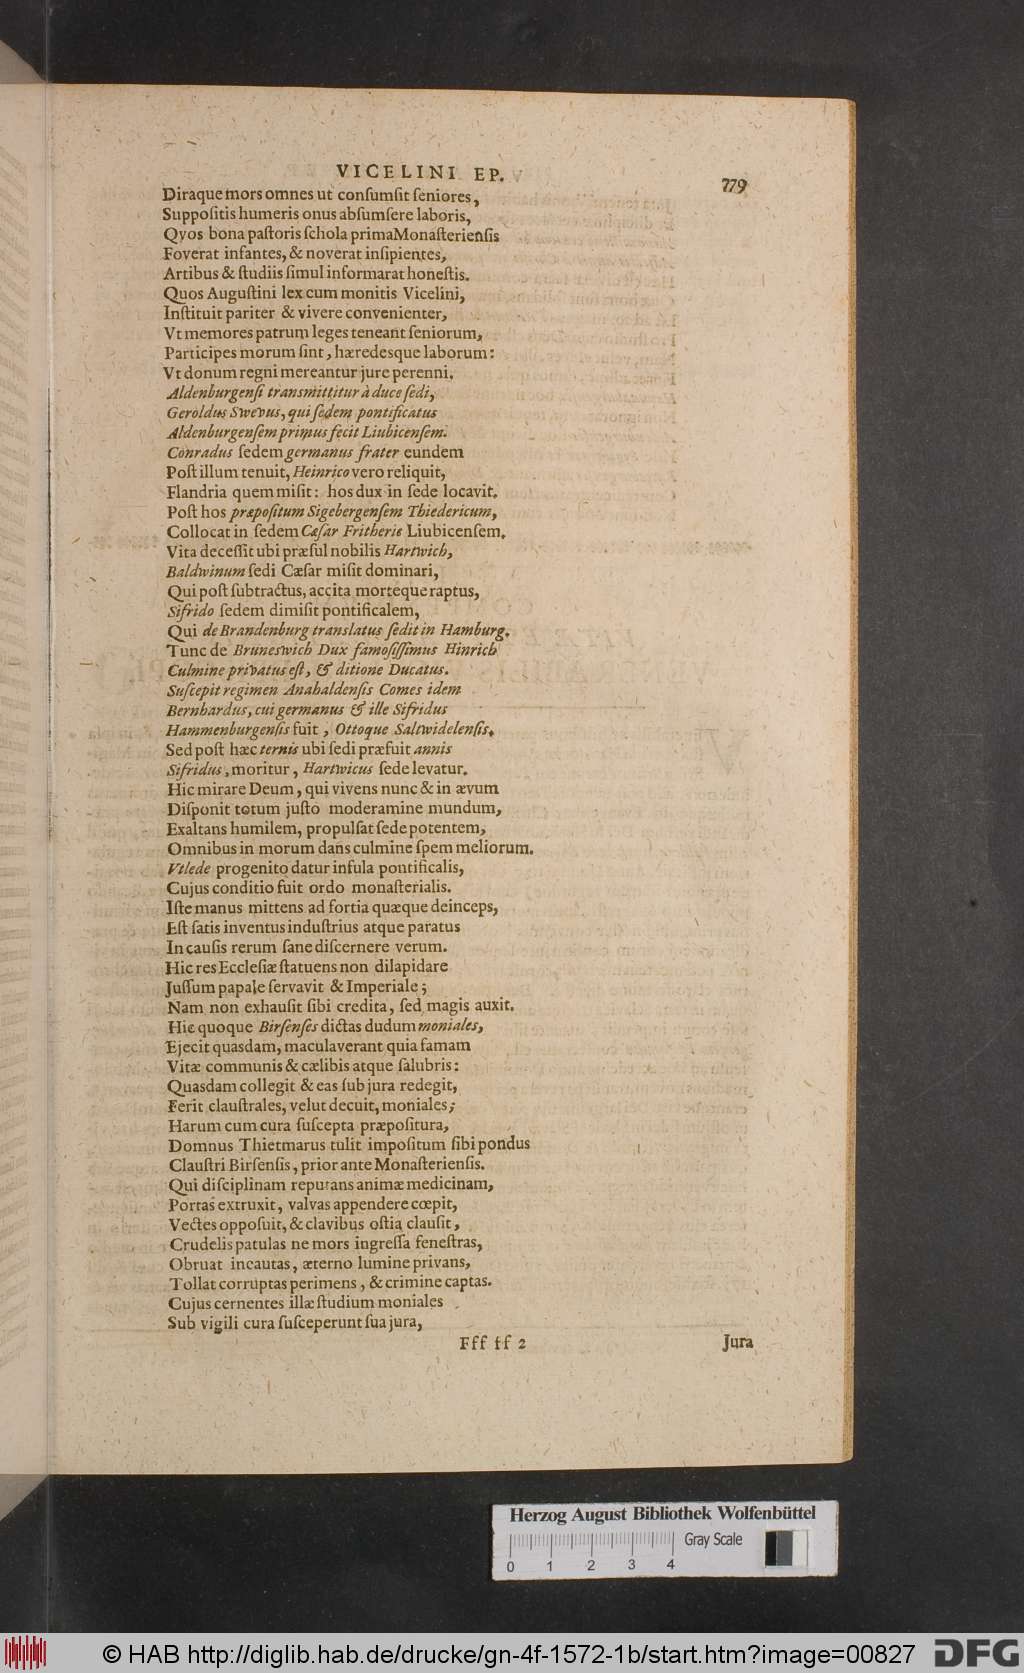 VICELINI EP. 779
Diraque mors omnes ut conſumſit ſeniores,
Suppoſitis humeris onus abſumſere laboris,
Qyos bona paſtoris ſchola prima Monaſterienſis
Foverat infantes, & noverat inſipientes,
Artibus & ſtudiis ſimul informarat honeſtis.
Quos Auguſtini lex cum monitis Vicelini,
Inſtituit pariter & vivere convenienter,
Vt memores patrum leges teneant ſeniorum,
Participes morum ſint, hæredesque laborum:
Vt donum regni mereantur jure perenni.
Aldenburgenſi transmittitur à duce ſedi,
Geroldus Swevus, qui ſedem pontificatus
Aldenburgenſem primus fecit Liubicenſem.
Conradus ſedem germanus frater eundem
Poſt illum tenuit, Heinrico vero reliquit,
Flandria quem miſit: hos dux in ſede locavit.
Poſt hos præpoſitum Sigebergenſem Thiedericum,
Collocat in ſedem Cæſar Fritheric Liubicenſem.
Vita deceſſit ubi præſul nobilis Hartwich,
Baldwinum ſedi Cæſar miſit dominari,
Qui poſt ſubtractus, accita morteque raptus,
Sifrido ſedem dimiſit pontificalem,
Qui de Brandenburg translatus ſedit in Hamburg.
Tunc de Bruneswich Dux famoſiſſimus Hinrich
Culmine privatus eſt, & ditione Ducatus.
Suſcepit regimen Anahaldenſis Comes idem
Bernhardus, cui germanus & ille Sifridus
Hammenburgenſis fuit, Ottoque Saltwidelenſis.
Sed poſt hæc ternis ubi ſedi præfuit annis
Sifridus, moritur, Hartwicus ſede levatur.
Hic mirare Deum, qui vivens nunc & in ævum
Diſponit totum juſto moderamine mundum,
Exaltans humilem, propulſat ſede potentem,
Omnibus in morum dans culmine ſpem meliorum.
Vtlede progenito datur infula pontificalis,
Cujus conditio fuit ordo monaſterialis.
Iſte manus mittens ad fortia quæque deinceps,
Eſt ſatis inventus induſtrius atque paratus
In cauſis rerum ſane diſcernere verum.
Hic res Eccleſiæ ſtatuens non dilapidare
Juſſum papale ſervavit & Imperiale;
Nam non exhauſit ſibi credita, ſed magis auxit.
Hic quoque Birſenſes dictas dudum moniales,
Ejecit quasdam, maculaverant quia famam
Vitæ communis & cælibis atque ſalubris:
Quasdam collegit & eas ſub jura redegit,
Ferit clauſtrales, velut decuit, moniales;
Harum cum cura ſuſcepta præpoſitura,
Domnus Thietmarus tulit impoſitum ſibi pondus
Clauſtri Birſenſis, prior ante Monaſterienſis.
Qui diſciplinam reputans animæ medicinam,
Portas extruxit, valvas appendere cœpit,
Vectes oppoſuit, & clavibus oſtia clauſit,
Crudelis patulas ne mors ingreſſa feneſtras,
Obruat incautas, æterno lumine privans,
Tollat corruptas perimens, & crimine captas.
Cujus cernentes illæ ſtudium moniales
Sub vigili cura ſuſceperunt ſua jura,
Fff ff 2 Jura
Herzog August Bibliothek Wolfenbüttel
Gray Scale
0 1 2 3 4
© HAB http://diglib.hab.de/drucke/gn-4f-1572-1b/start.htm?image=00827 DFG